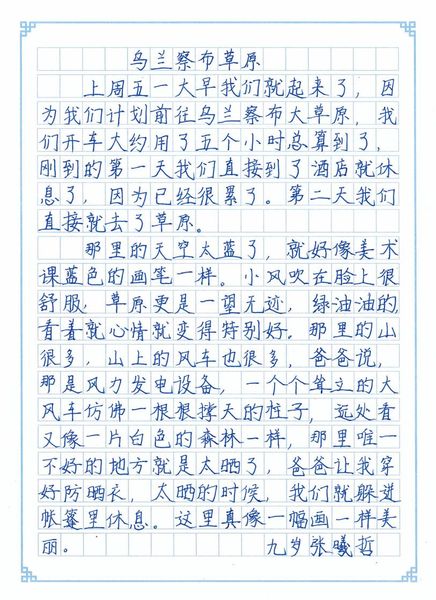 乌兰察布草原
上周五一大早我们就起来了，因
为我们计划前往乌兰察布大草原，我
们开车大约用了五个小时总算到了，
刚到的第一天我们直接到了酒店就休
息了，因为已经很累了。第二天我们
直接就去了草原。
那里的天空太蓝了，就好像美术
课蓝色的画笔一样。小风吹在脸上很
舒服，草原更是一望无迹，绿油油的，
看着就心情就变得特别好。那里的山
很多，山上的风车也很多，爸爸说，
那是风力发电设备，一个个耸立的大
风车仿佛一根根撑天的柱子，远处看
又像一片白色的森林一样，那里唯一
不好的地方就是太晒了，爸爸让我穿
好防晒衣，太晒的时候，我们就躲进
帐篷里休息。这里真像一幅画一样美
丽。 九岁张曦哲